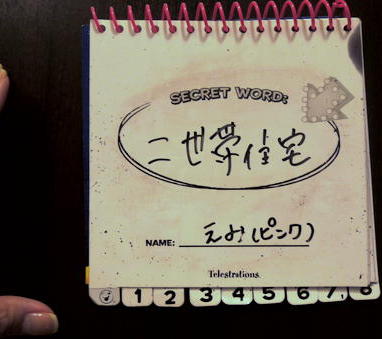 SECRET WORD:
二世帯住宅
NAME: えみ(ピンク)
Telestrations
1 2 3 4 5 6 7 8